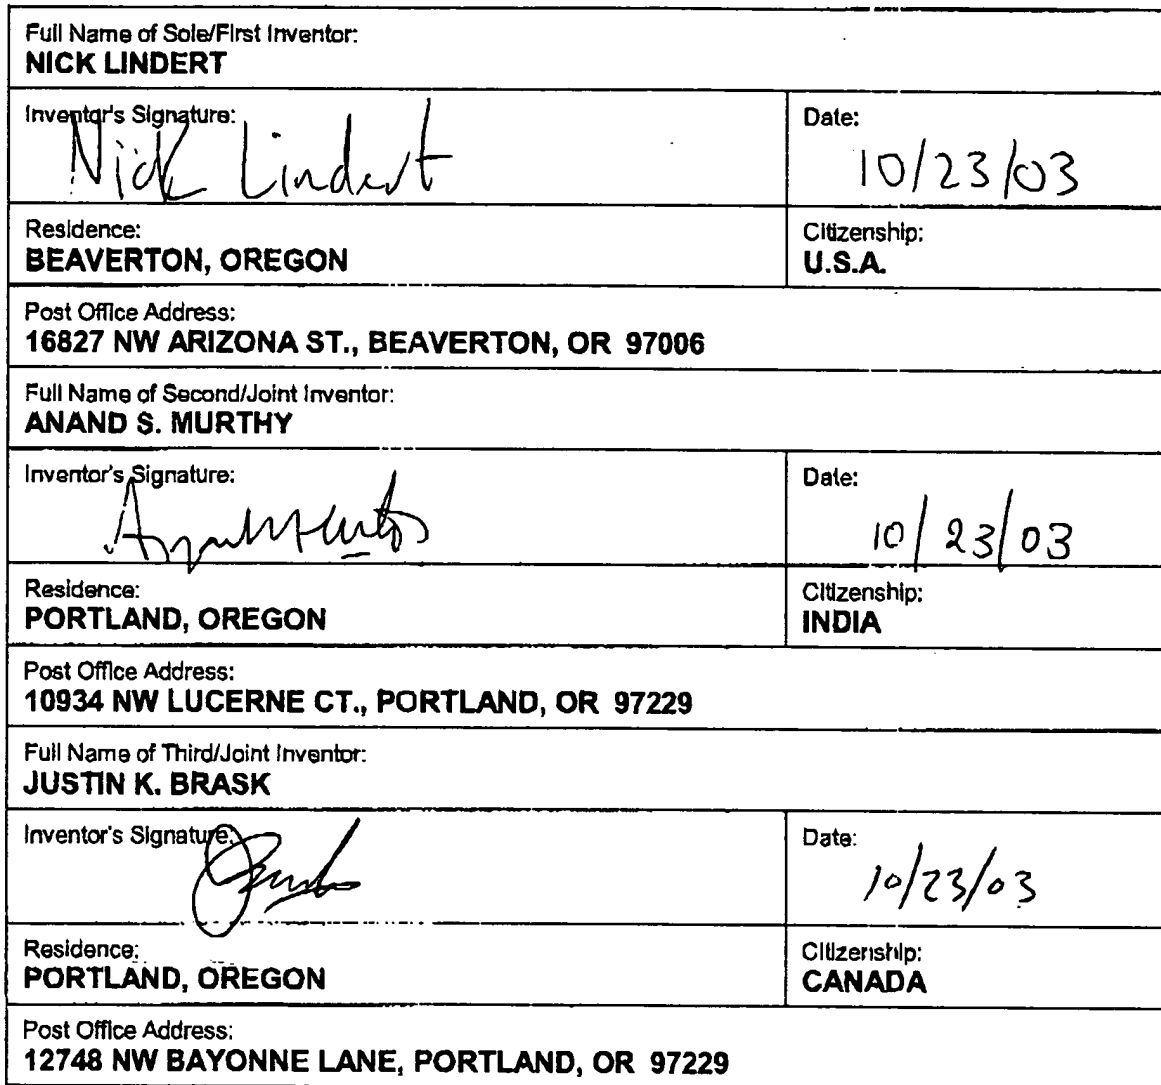 Full Name of Sole/First Inventor:
NICK LINDERT
Inventor's Signature:
Nick Lindert
Date:
10/23/03
Residence:
BEAVERTON, OREGON
Citizenship:
U.S.A.
Post Office Address:
16827 NW ARIZONA ST., BEAVERTON, OR 97006
Full Name of Second/Joint Inventor:
ANAND S. MURTHY
Inventor's Signature:
Date:
10/23/03
Residence:
PORTLAND, OREGON
Citizenship:
INDIA
Post Office Address:
10934 NW LUCERNE CT., PORTLAND, OR 97229
Full Name of Third/Joint Inventor:
JUSTIN K. BRASK
Inventor's Signature:
Date:
10/23/03
Residence:
PORTLAND, OREGON
Citizenship:
CANADA
Post Office Address:
12748 NW BAYONNE LANE, PORTLAND, OR 97229